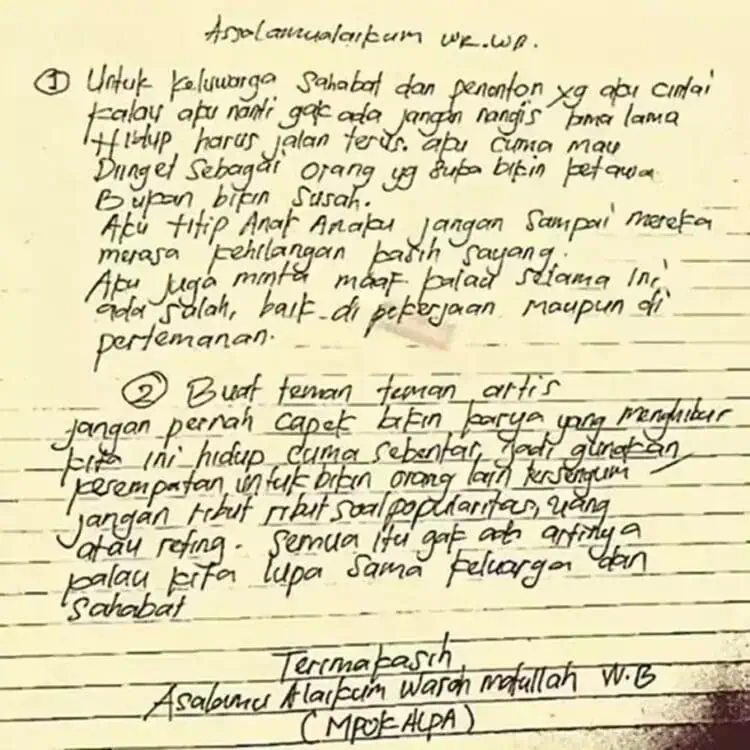 Assalamualaikum WR.WB.
① Untuk keluwarga sahabat dan penonton yg aku cintai
kalau aku nanti gak ada jangan nangis lama lama
Hidup harus jalan terus. aku cuma mau
Diinget sebagai orang yg suka bikin ketawa
Bukan bikin susah.
Aku titip Anak Anakku jangan sampai mereka
merasa kehilangan kasih sayang.
Aku juga minta maaf kalau selama ini,
ada salah, baik di pekerjaan maupun di
pertemanan.
② Buat teman teman artis
jangan pernah capek bikin karya yang menghibur
kita ini hidup cuma sebentar, jadi gunakan
kesempatan untuk bikin orang lain tersenyum
jangan ribut ribut soal popularitas, uang
atau reting. semua itu gak ada artinya
kalau kita lupa sama keluarga dan
sahabat
Terimakasih
Asalamu Alaikum Warohmatullah W.B
(MPOK ALPA)